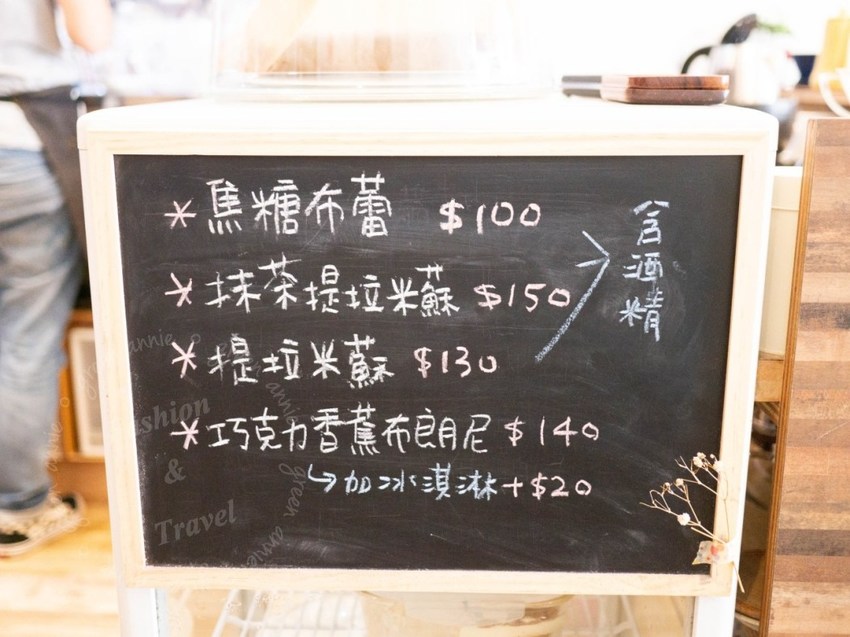 *焦糖布蕾 $100
*抹茶提拉米蘇 $150
*提拉米蘇 $130
含酒精
*巧克力香蕉布朗尼 $140
↳加冰淇淋+$20
Fashion
&
Travel
green annie